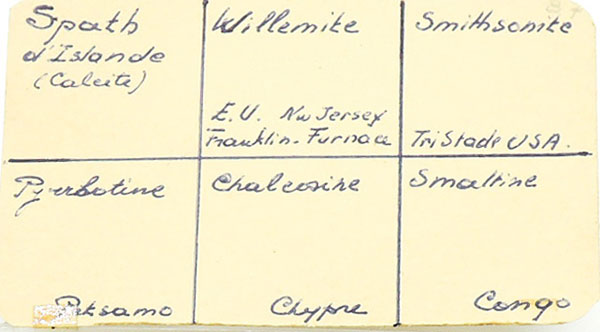 Spath
d'Islande
(Calcite)
Willemite
E.U. Nw Jersey
Franklin-Furnace
Smithsonite
TriStade USA.
Pyrrhotine
Petsamo
Chalcosine
Chypre
Smaltine
Congo